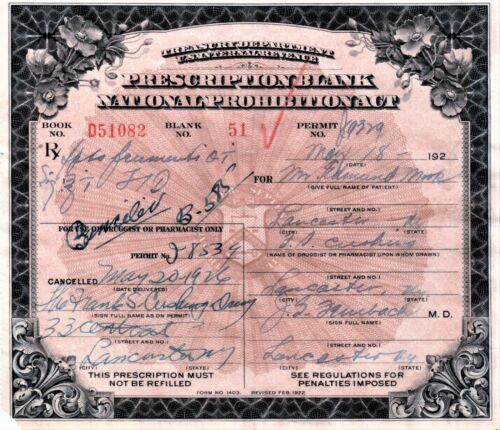 TREASURY DEPARTMENT
U.S. INTERNAL REVENUE
PRESCRIPTION BLANK
NATIONAL PROHIBITION ACT
BOOK NO. D51082 BLANK NO. 51 PERMIT NO.
Rx
May 8 - 192
(DATE)
FOR Mr Edmund
(GIVE FULL NAME OF PATIENT)
(STREET AND NO.)
Lancaster
(CITY) (STATE)
Cancelled B-585
Cushing
FOR USE OF DRUGGIST OR PHARMACIST ONLY
(NAME OF DRUGGIST OR PHARMACIST UPON WHOM DRAWN)
PERMIT No J-8539
(STREET AND NO.)
CANCELLED May 20 1926
(DATE DELIVERED)
Lancaster
(CITY) (STATE)
The Frank S. Cushing Drug
(SIGN FULL NAME AS ON PERMIT)
M. D.
(SIGN FULL NAME)
33 Central
(STREET AND NO.)
(STREET AND NO.)
Lancaster NY
(CITY) (STATE)
Lancaster NY
(CITY) (STATE)
THIS PRESCRIPTION MUST
NOT BE REFILLED
SEE REGULATIONS FOR
PENALTIES IMPOSED
FORM NO. 1403. REVISED FEB. 1922